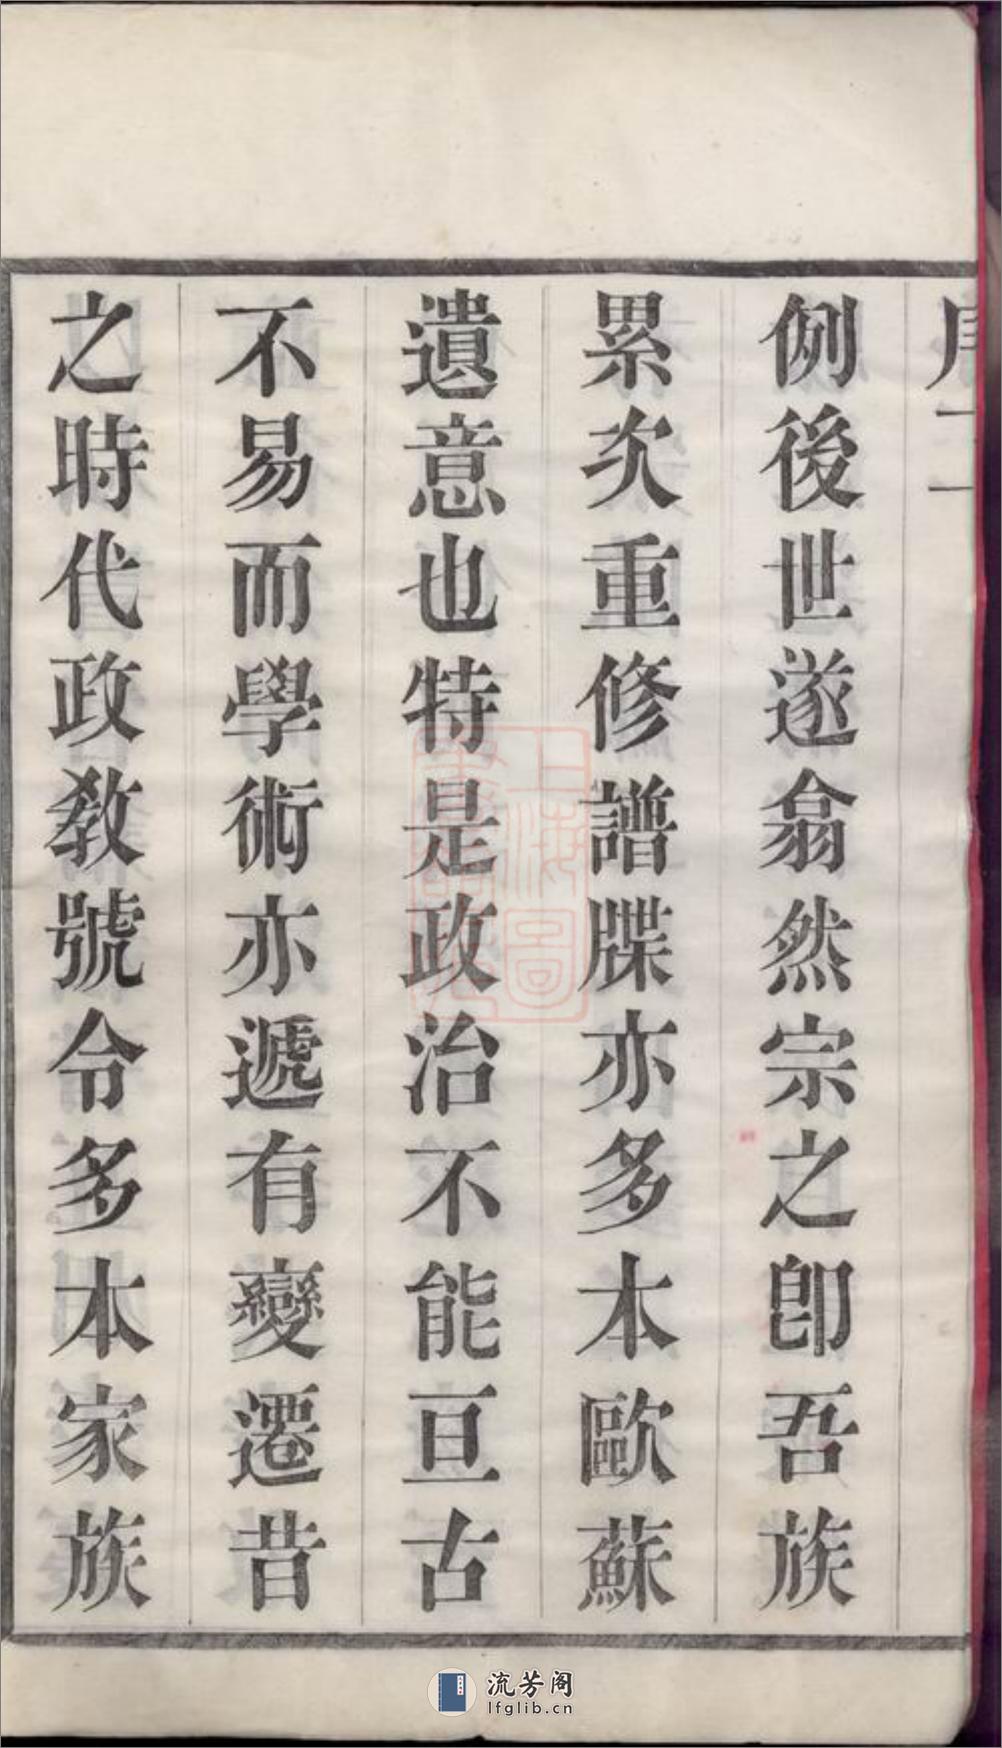 例後世遂翕然宗之卽吾族
累次重修譜牒亦多本歐蘇
遺意也特是政治不能亘古
不易而學術亦遞有變遷昔
之時代政敎號令多本家族
上海圖
流芳阁
lfglib.cn